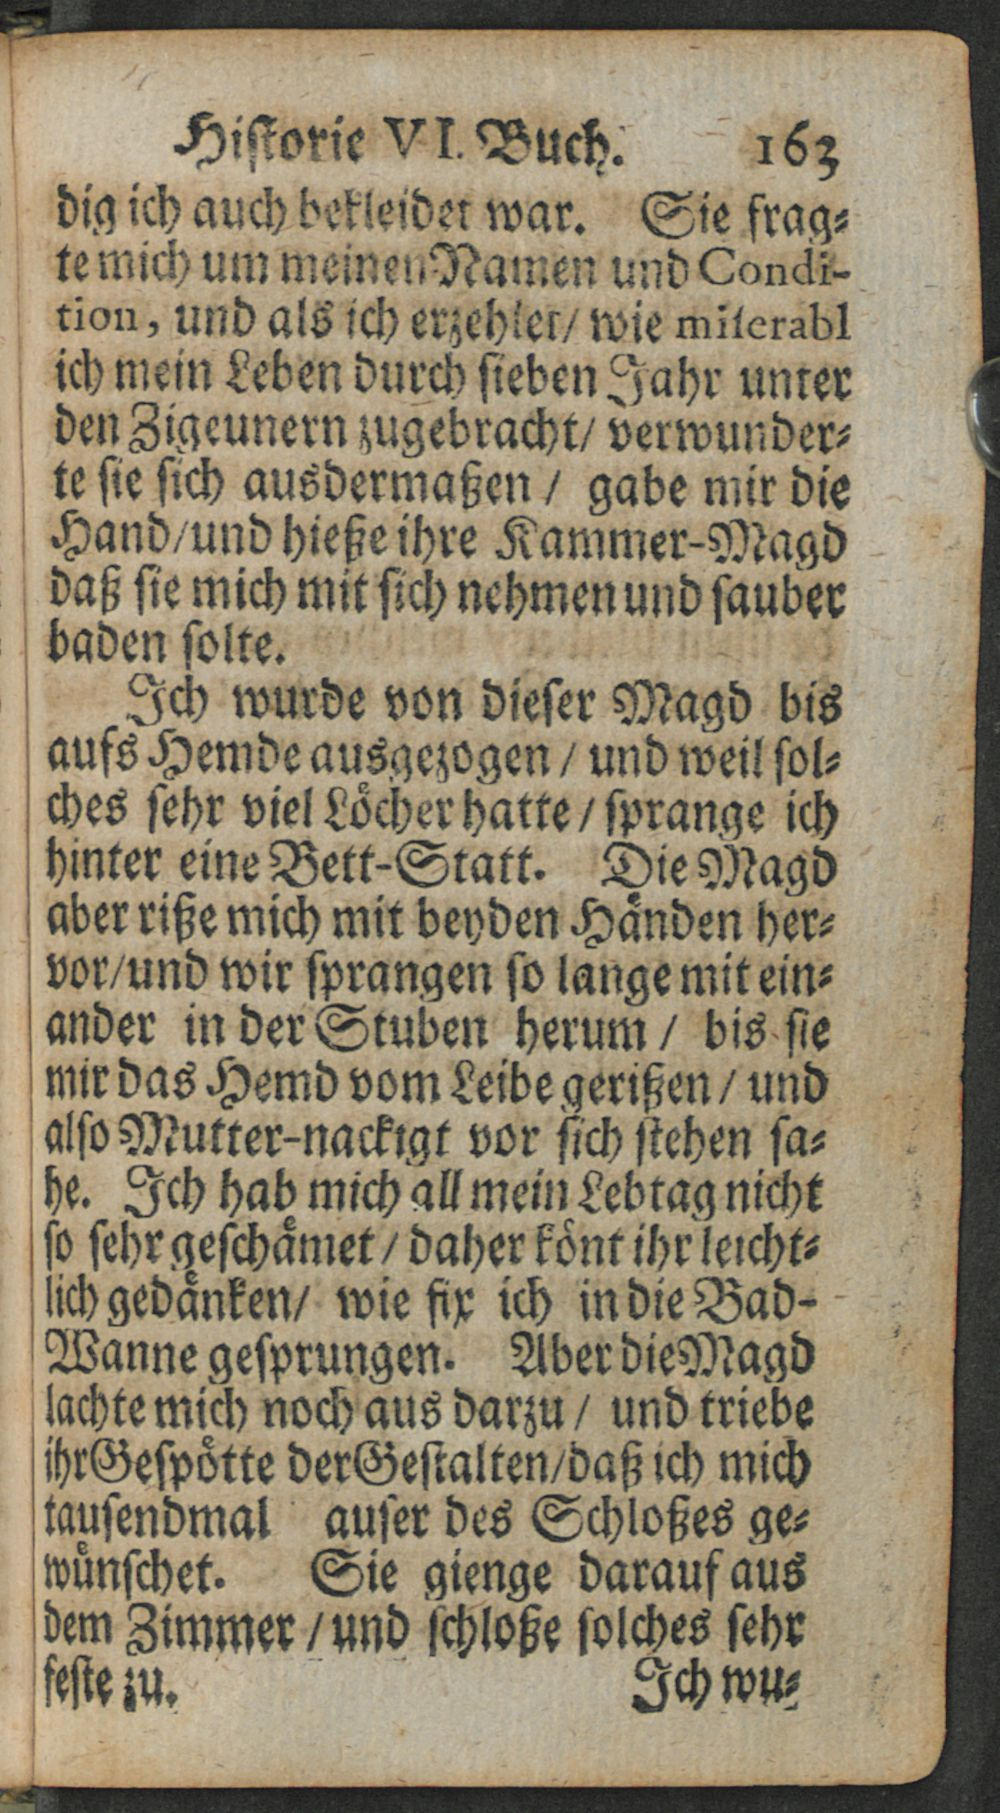 Historie VI. Buch. 163
dig ich auch bekleidet war. Sie frag⸗
te mich um meinen Namen und Condi-
tion, und als ich erzehlet/ wie miserabl
ich mein Leben durch sieben Jahr unter
den Zigeunern zugebracht/ verwunder⸗
te sie sich ausdermaßen / gabe mir die
Hand/und hieße ihre Kammer-Magd
daß sie mich mit sich nehmen und sauber
baden solte.
Ich wurde von dieser Magd bis
aufs Hemde ausgezogen / und weil sol⸗
ches sehr viel Löcher hatte / sprange ich
hinter eine Bett-Statt. Die Magd
aber riße mich mit beyden Händen her⸗
vor/und wir sprangen so lange mit ein⸗
ander in der Stuben herum / bis sie
mir das Hemd vom Leibe gerißen / und
also Mutter-nackigt vor sich stehen sa⸗
he. Ich hab mich all mein Lebtag nicht
so sehr geschämet / daher könt ihr leicht⸗
lich gedänken/ wie fix ich in die Bad-
Wanne gesprungen. Aber die Magd
lachte mich noch aus darzu / und triebe
ihr Gespötte der Gestalten/daß ich mich
tausendmal auser des Schloßes ge⸗
wünschet. Sie gienge darauf aus
dem Zimmer / und schloße solches sehr
feste zu. Ich wu⸗